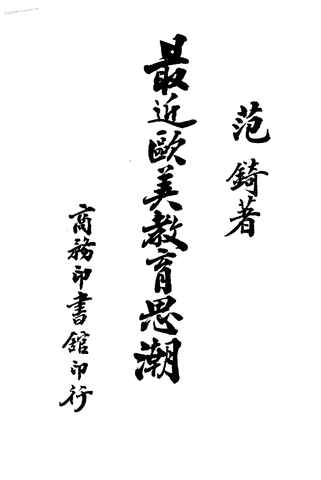 范錡著
最近歐美教育思潮
商務印書館印行